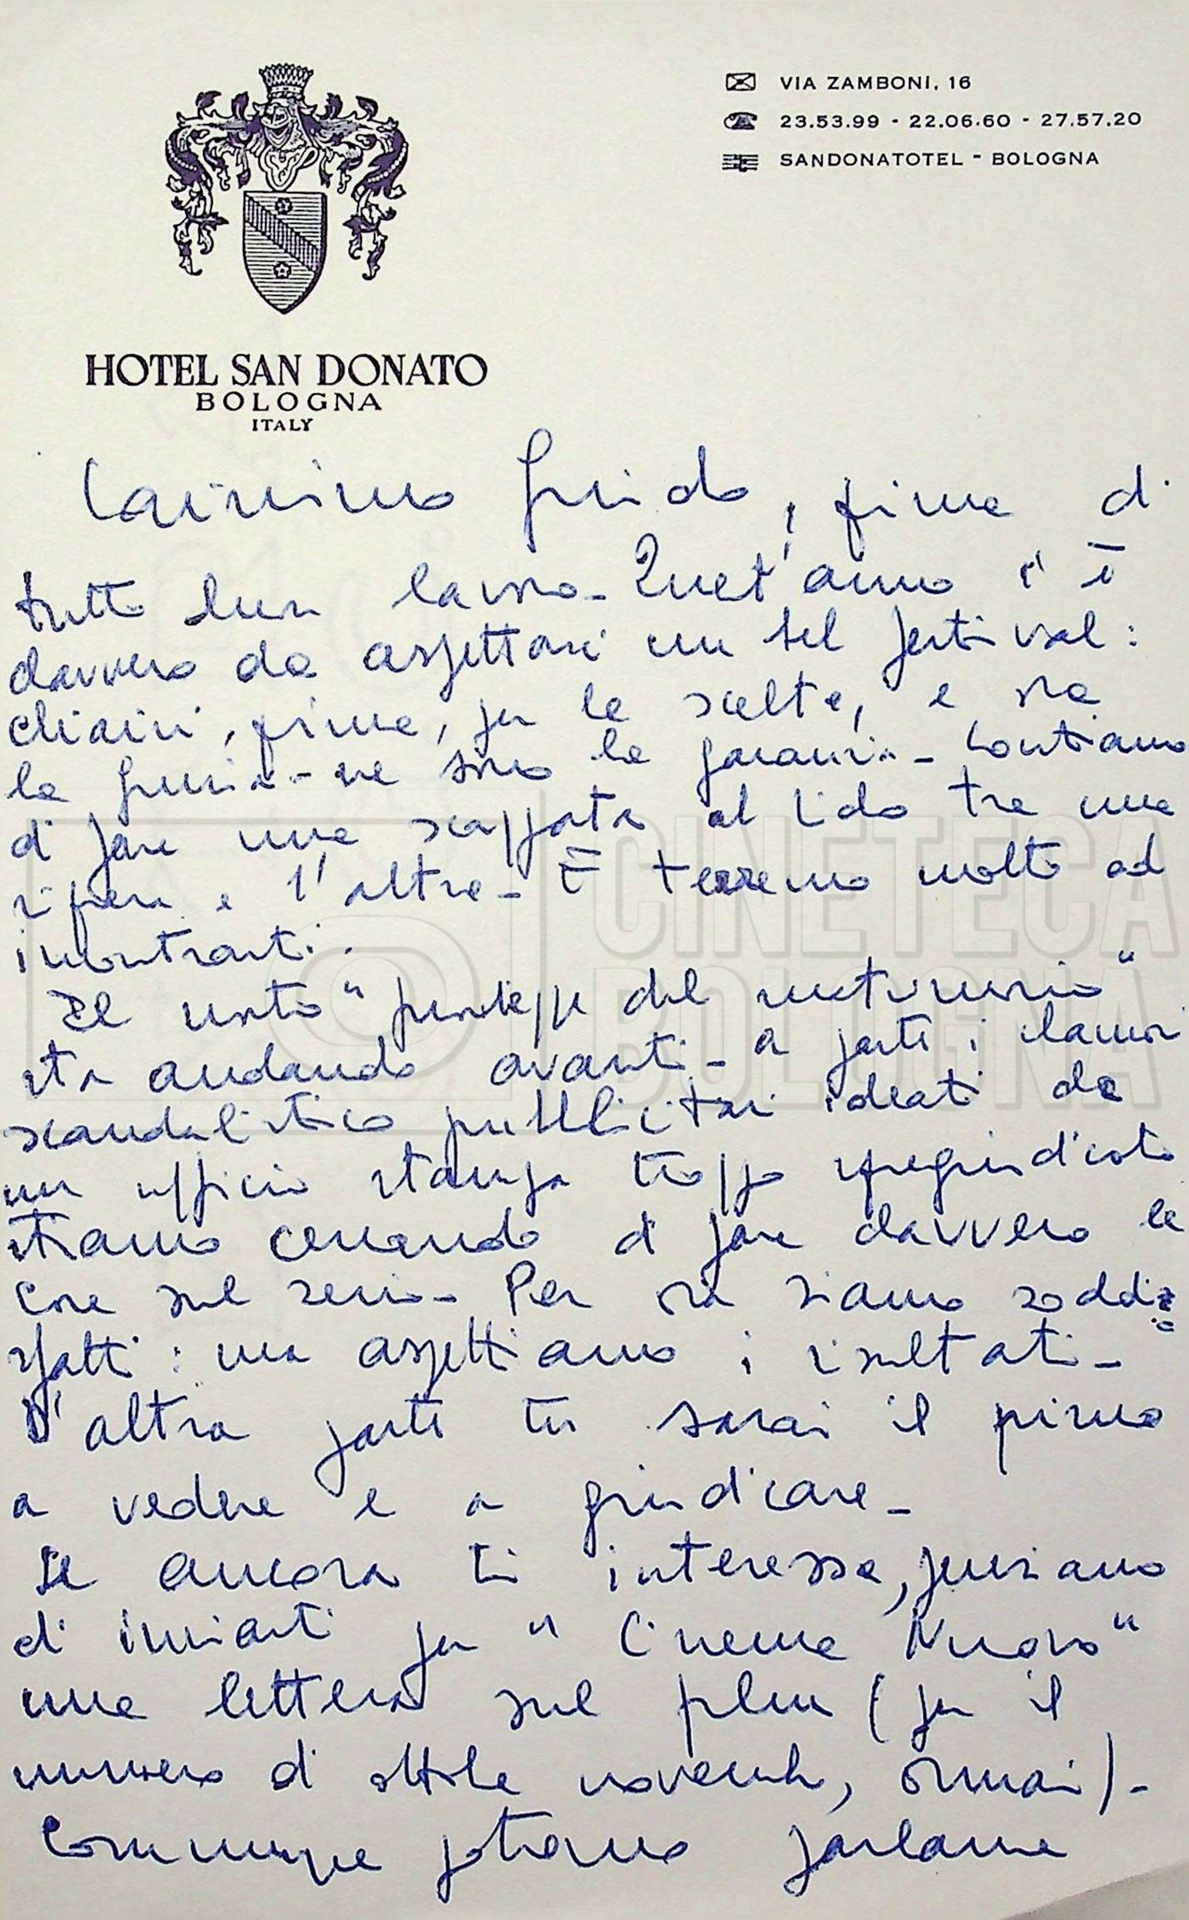 VIA ZAMBONI, 16
23.53.99 - 22.06.60 - 27.57.20
SANDONATOTEL - BOLOGNA
HOTEL SAN DONATO
BOLOGNA
ITALY
Carissimo Guido, prima di
tutto buon lavoro - Quest'anno c'è
davvero da aspettarsi un bel festival:
Chiarini, prima, per le scelte, e ora
la giuria - ne sono la garanzia - Contiamo
di fare una scappata al Lido tra una
ripresa e l'altra - E terremo molto ad
incontrarti.
Il nostro "pursleppe del matrimonio"
sta andando avanti - a parte i clamori
scandalistico pubblicitari ideati da
un ufficio stampa troppo spregiudicato
stiamo cercando di fare davvero le
cose sul serio - Per ora siamo soddi=
sfatti: ma aspettiamo i risultati -
D'altra parte tu sarai il primo
a vedere e a giudicare -
Se ancora ti interessa, pensiamo
di inviarti per "Cinema Nuovo"
una lettera sul film (per il
numero di ottobre novembre, ormai) -
Comunque potremo parlarne
CINETECA
BOLOGNA